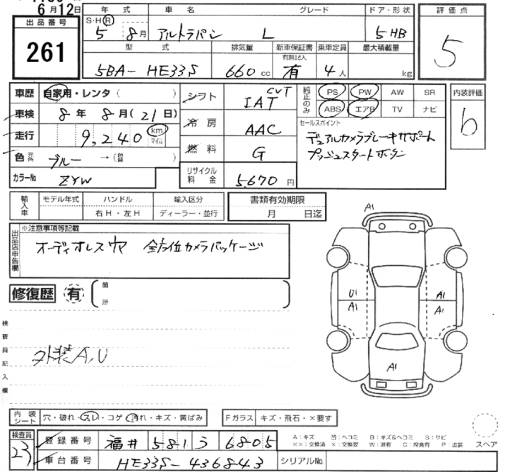 6月12日
出品番号
261
年式 車名 グレード ドア・形状
S・H・R 5年 8月 アルトラパン L 5HB
型式 排気量 新車保証書 有無記入 乗車定員 最大積載量
5BA-HE33S 660cc 有 4人 kg
評価点
5
車歴 自家用・レンタ( )
車検 8年 8月(21日)
走行 9,240 km マイル
色 ブルー →(替 )
カラーNo ZYW
シフト CVT IAT
冷房 AAC
燃料 G
リサイクル料金 5670円
純正のみ PS PW AW SR
ABS エアB TV ナビ
セールスポイント
デュアルカメラブレーキサポート
プッシュスタートボタン
内装評価
b
輸入車 モデル年式 ハンドル 輸入区分
右H・左H ディーラー・並行
書類有効期限
月 日迄
出品店申告欄 ※注意事項等記載
オーディオレス穴 全方位カメラパッケージ
修復歴 有 箇所
検査員記入欄
外装A,U
A1
U1
A1
A1
A1
A1
A1
内装シート 穴・破れ・スレ・コゲ・汚れ・キズ・黄ばみ
Fガラス キズ・飛石・×要す
検査員
23
登録番号 福井 581 う 6805
車台番号 HE33S-436843
シリアルNo
A:キズ U:ヘコミ B:キズ&ヘコミ S:サビ
××:交換済 ×:交換要
スペア